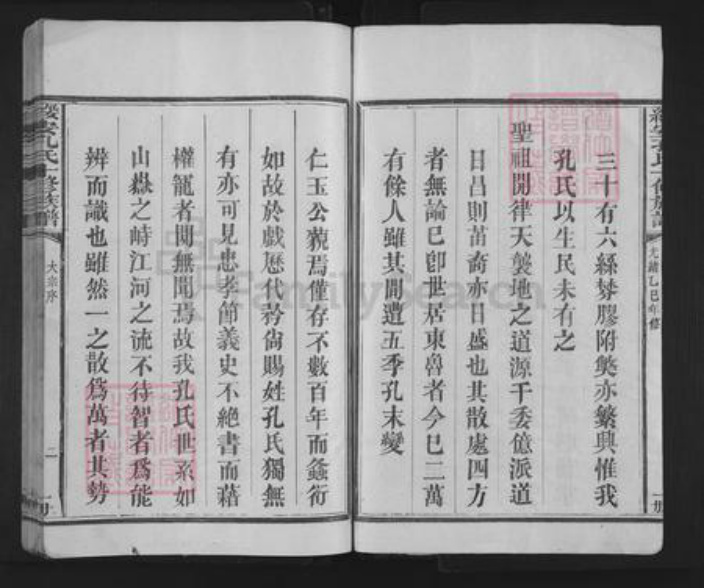 三十有六絲棼膠附奠亦繁興惟我
孔氏以生民未有之
聖祖開律天襲地之道源千委億派道
日昌則苗裔亦日盛也其散處四方
者無論已卽世居東魯者今已二萬
有餘人雖其間遭五季孔末變
光緖乙巳年修
仁玉公藐焉僅存不數百年而螽衍
如故於戲歷代矜尙賜姓孔氏獨無
有亦可見忠孝節義史不絕書而藉
權寵者閴無聞焉故我孔氏世系如
山嶽之峙江河之流不待智者爲能
辨而識也雖然一之散爲萬者其勢
孔氏一修族譜
大宗序
二
一册
FamilySearch